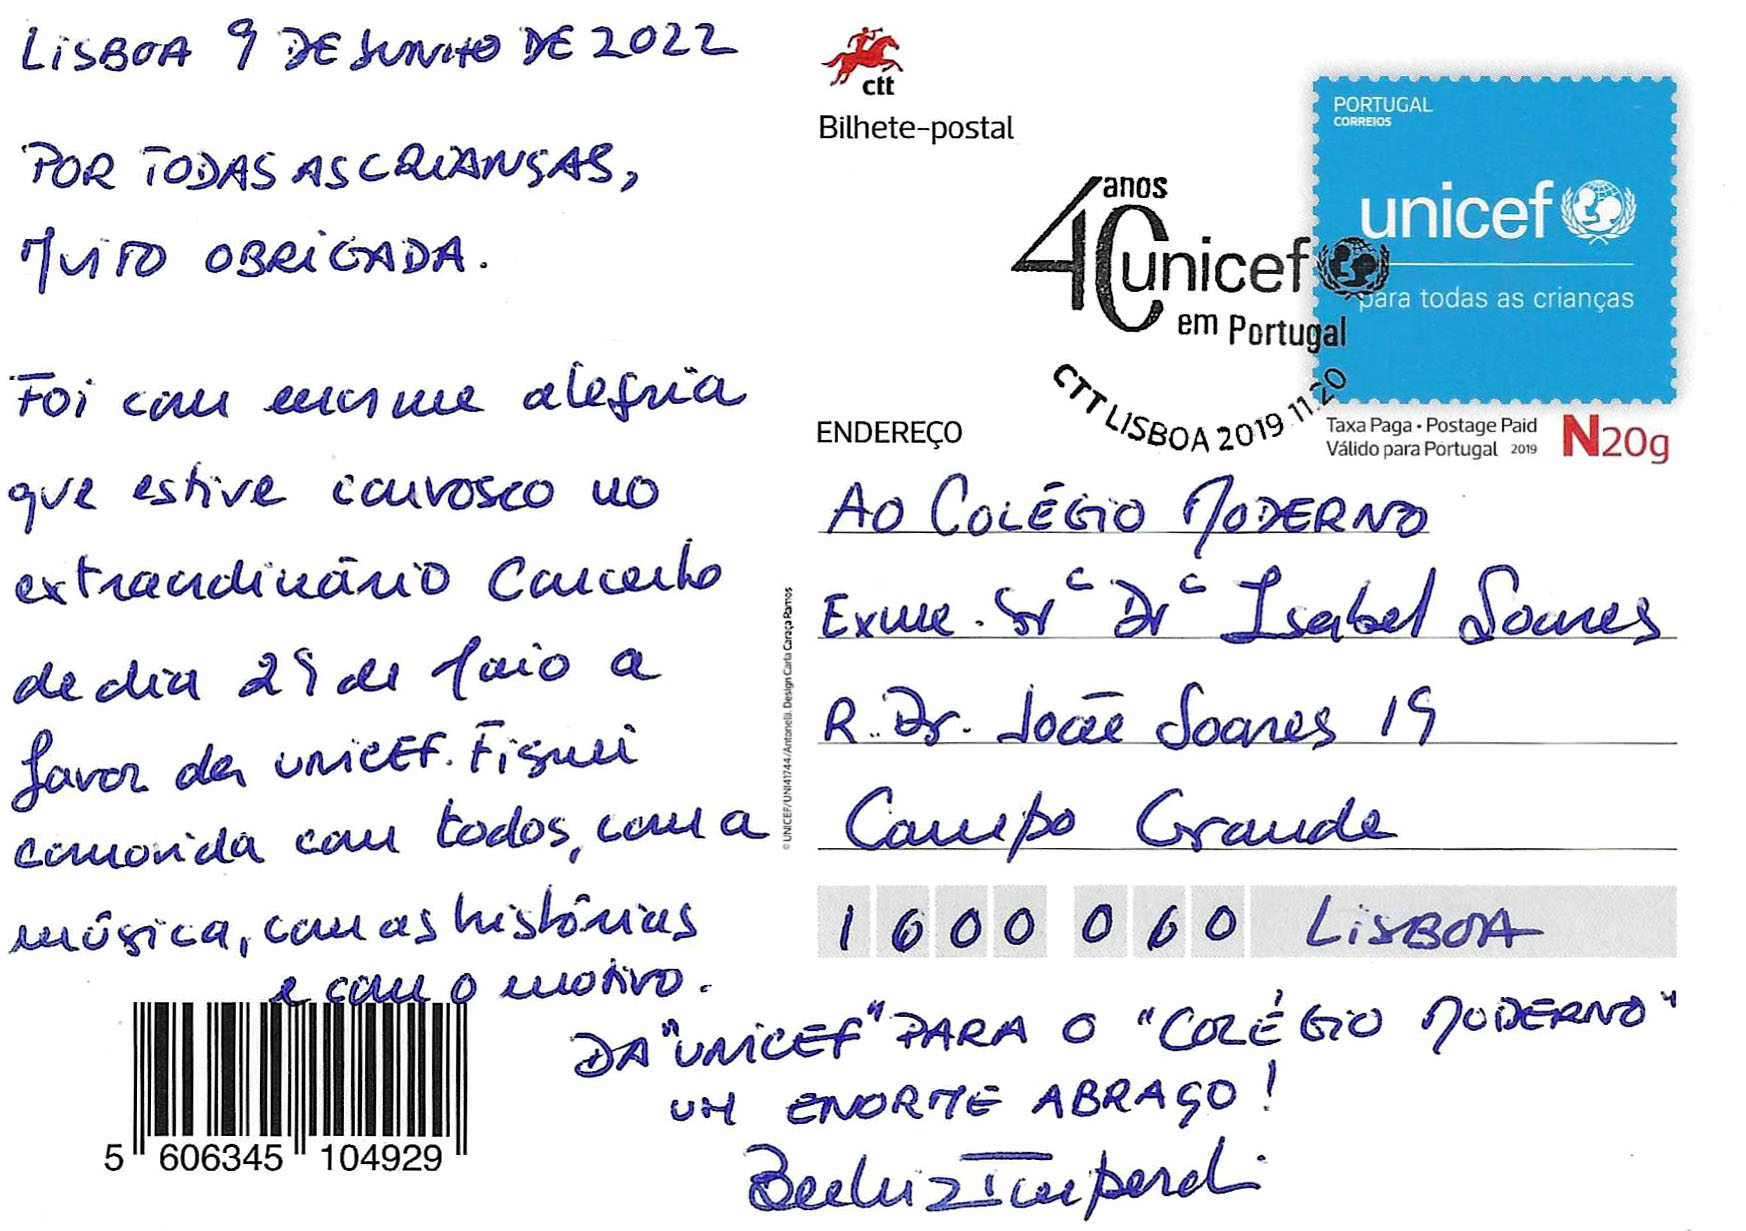 LISBOA 9 DE JUNHO DE 2022
POR TODAS AS CRIANÇAS,
MUITO OBRIGADA.
Foi com enorme alegria
que estive convosco no
extraordinário Concerto
de dia 29 de Maio a
favor da UNICEF. Fiquei
comovida com todos, com a
música, com as histórias
e com o motivo.
DA "UNICEF" PARA O "COLÉGIO MODERNO"
UM ENORME ABRAÇO!
Beatriz Imperatori
5 606345 104929
ctt
Bilhete-postal
anos
40 unicef
em Portugal
CTT LISBOA 2019.11.20
PORTUGAL
CORREIOS
unicef
para todas as crianças
Taxa Paga • Postage Paid
Válido para Portugal 2019
N20g
ENDEREÇO
AO COLÉGIO MODERNO
Exma. Srª Drª Isabel Soares
R. Dr. João Soares 19
Campo Grande
1600 060 LISBOA
© UNICEF/UNI41744/Antonelli. Design Carla Caraça Ramos